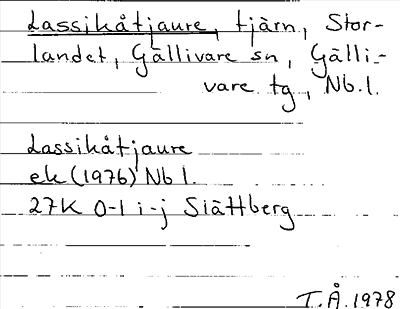 Lassikåtjaure, tjärn, Stor-
landet, Gällivare sn, Gälli-
vare tg, Nb.l.
Lassikåtjaure
ek (1976) Nb l.
27K 0-1 i-j Slättberg
T.Å. 1978